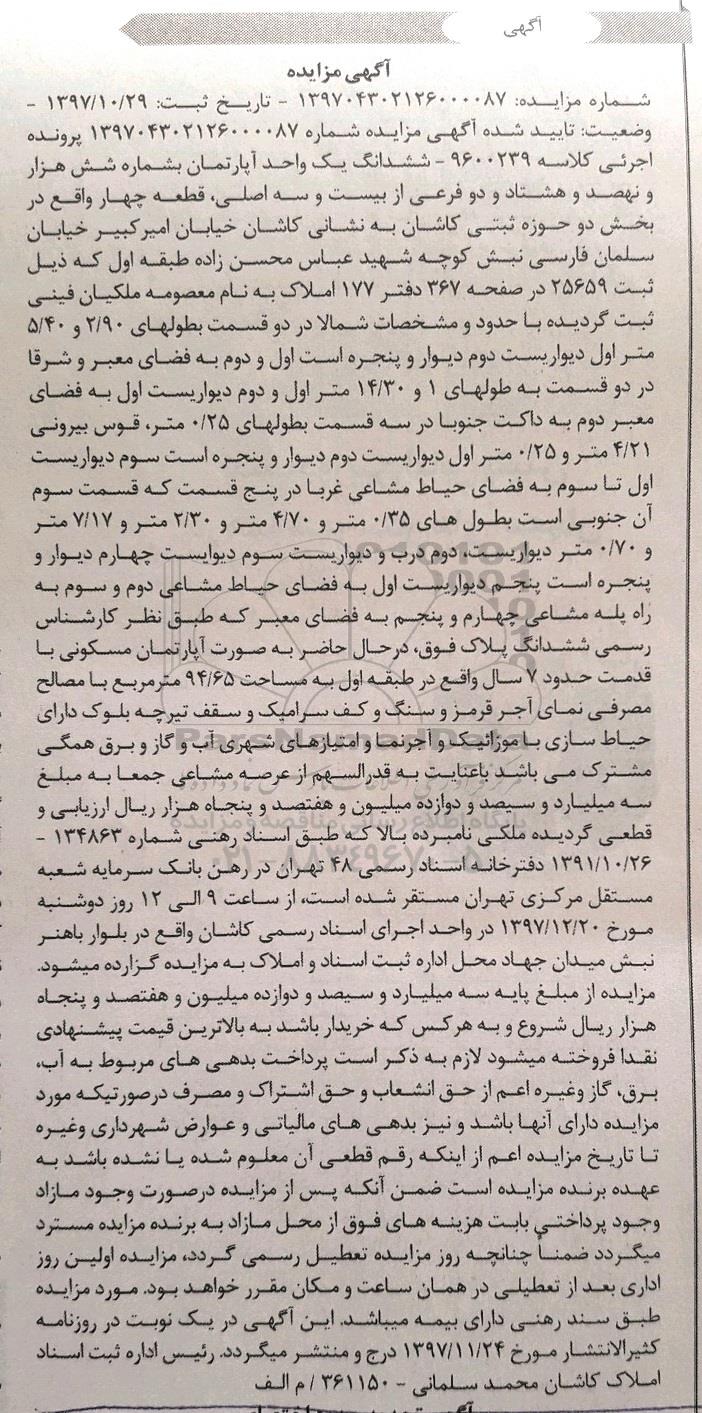 آگهی
آگهی مزایده
شماره مزایده: ۱۳۹۷۰۴۳۰۲۱۲۶۰۰۰۰۸۷ - تاریخ ثبت: ۱۳۹۷/۱۰/۲۹ -
وضعیت: تایید شده آگهی مزایده شماره ۱۳۹۷۰۴۳۰۲۱۲۶۰۰۰۰۸۷ پرونده
اجرئی کلاسه ۹۶۰۰۲۳۹ - ششدانگ یک واحد آپارتمان بشماره شش هزار
و نهصد و هشتاد و دو فرعی از بیست و سه اصلی، قطعه چهار واقع در
بخش دو حوزه ثبتی کاشان به نشانی کاشان خیابان امیرکبیر خیابان
سلمان فارسی نبش کوچه شهید عباس محسن زاده طبقه اول که ذیل
ثبت ۲۵۶۵۹ در صفحه ۳۶۷ دفتر ۱۷۷ املاک به نام معصومه ملکیان فینی
ثبت گردیده با حدود و مشخصات شمالا در دو قسمت بطولهای ۲/۹۰ و ۵/۴۰
متر اول دیواریست دوم دیوار و پنجره است اول و دوم به فضای معبر و شرقا
در دو قسمت به طولهای ۱ و ۱۴/۳۰ متر اول و دوم دیواریست اول به فضای
معبر دوم به داکت جنوبا در سه قسمت بطولهای ۰/۲۵ متر، قوس بیرونی
۴/۲۱ متر و ۰/۲۵ متر اول دیواریست دوم دیوار و پنجره است سوم دیواریست
اول تا سوم به فضای حیاط مشاعی غربا در پنج قسمت که قسمت سوم
آن جنوبی است بطول های ۰/۳۵ متر و ۴/۷۰ متر و ۲/۳۰ متر و ۷/۱۷ متر
و ۰/۷۰ متر دیواریست، دوم درب و دیواریست سوم دیوایست چهارم دیوار و
پنجره است پنجم دیواریست اول به فضای حیاط مشاعی دوم و سوم به
راه پله مشاعی چهارم و پنجم به فضای معبر که طبق نظر کارشناس
رسمی ششدانگ پلاک فوق، درحال حاضر به صورت آپارتمان مسکونی با
قدمت حدود ۷ سال واقع در طبقه اول به مساحت ۹۴/۶۵ مترمربع با مصالح
مصرفی نمای آجر قرمز و سنگ و کف سرامیک و سقف تیرچه بلوک دارای
حیاط سازی با موزائیک و آجرنما و امتیازهای شهری آب و گاز و برق همگی
مشترک می باشد باعنایت به قدرالسهم از عرصه مشاعی جمعا به مبلغ
سه میلیارد و سیصد و دوازده میلیون و هفتصد و پنجاه هزار ریال ارزیابی و
قطعی گردیده ملکی نامبرده بالا که طبق اسناد رهنی شماره ۱۳۴۸۶۳ -
۱۳۹۱/۱۰/۲۶ دفترخانه اسناد رسمی ۴۸ تهران در رهن بانک سرمایه شعبه
مستقل مرکزی تهران مستقر شده است، از ساعت ۹ الی ۱۲ روز دوشنبه
مورخ ۱۳۹۷/۱۲/۲۰ در واحد اجرای اسناد رسمی کاشان واقع در بلوار باهنر
نبش میدان جهاد محل اداره ثبت اسناد و املاک به مزایده گزارده میشود.
مزایده از مبلغ پایه سه میلیارد و سیصد و دوازده میلیون و هفتصد و پنجاه
هزار ریال شروع و به هرکس که خریدار باشد به بالاترین قیمت پیشنهادی
نقدا فروخته میشود لازم به ذکر است پرداخت بدهی های مربوط به آب،
برق، گاز وغیره اعم از حق انشعاب و حق اشتراک و مصرف درصورتیکه مورد
مزایده دارای آنها باشد و نیز بدهی های مالیاتی و عوارض شهرداری وغیره
تا تاریخ مزایده اعم از اینکه رقم قطعی آن معلوم شده یا نشده باشد به
عهده برنده مزایده است ضمن آنکه پس از مزایده درصورت وجود مازاد
وجود پرداختی بابت هزینه های فوق از محل مازاد به برنده مزایده مسترد
میگردد ضمناً چنانچه روز مزایده تعطیل رسمی گردد، مزایده اولین روز
اداری بعد از تعطیلی در همان ساعت و مکان مقرر خواهد بود. مورد مزایده
طبق سند رهنی دارای بیمه میباشد. این آگهی در یک نوبت در روزنامه
کثیرالانتشار مورخ ۱۳۹۷/۱۱/۲۴ درج و منتشر میگردد. رئیس اداره ثبت اسناد
املاک کاشان محمد سلمانی - ۳۶۱۱۵۰ / م الف